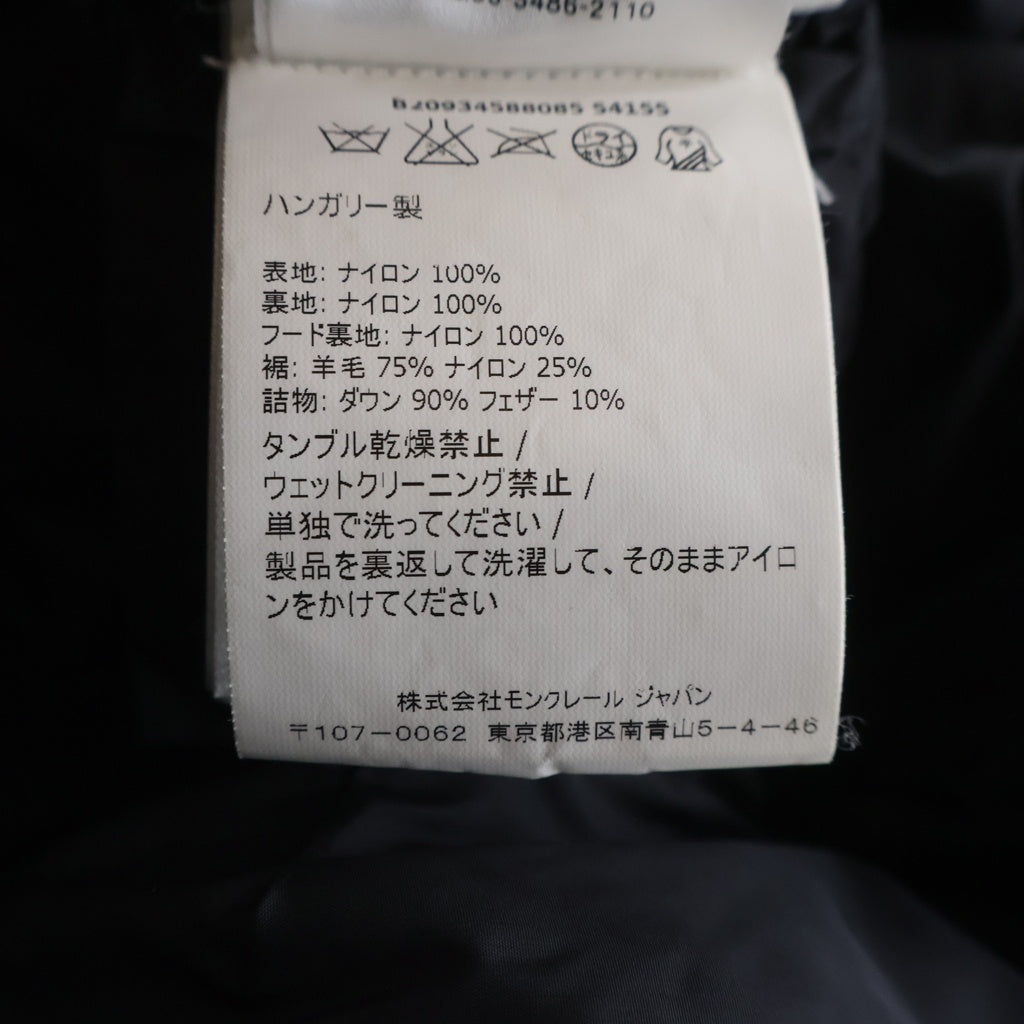 3486-2110
B20934588085 54155
ドライ
セキユ系
ハンガリー製
表地: ナイロン 100%
裏地: ナイロン 100%
フード裏地: ナイロン 100%
裾: 羊毛 75% ナイロン 25%
詰物: ダウン 90% フェザー 10%
タンブル乾燥禁止 /
ウェットクリーニング禁止 /
単独で洗ってください /
製品を裏返して洗濯して、そのままアイロ
ンをかけてください
株式会社モンクレール ジャパン
〒107-0062 東京都港区南青山5-4-46